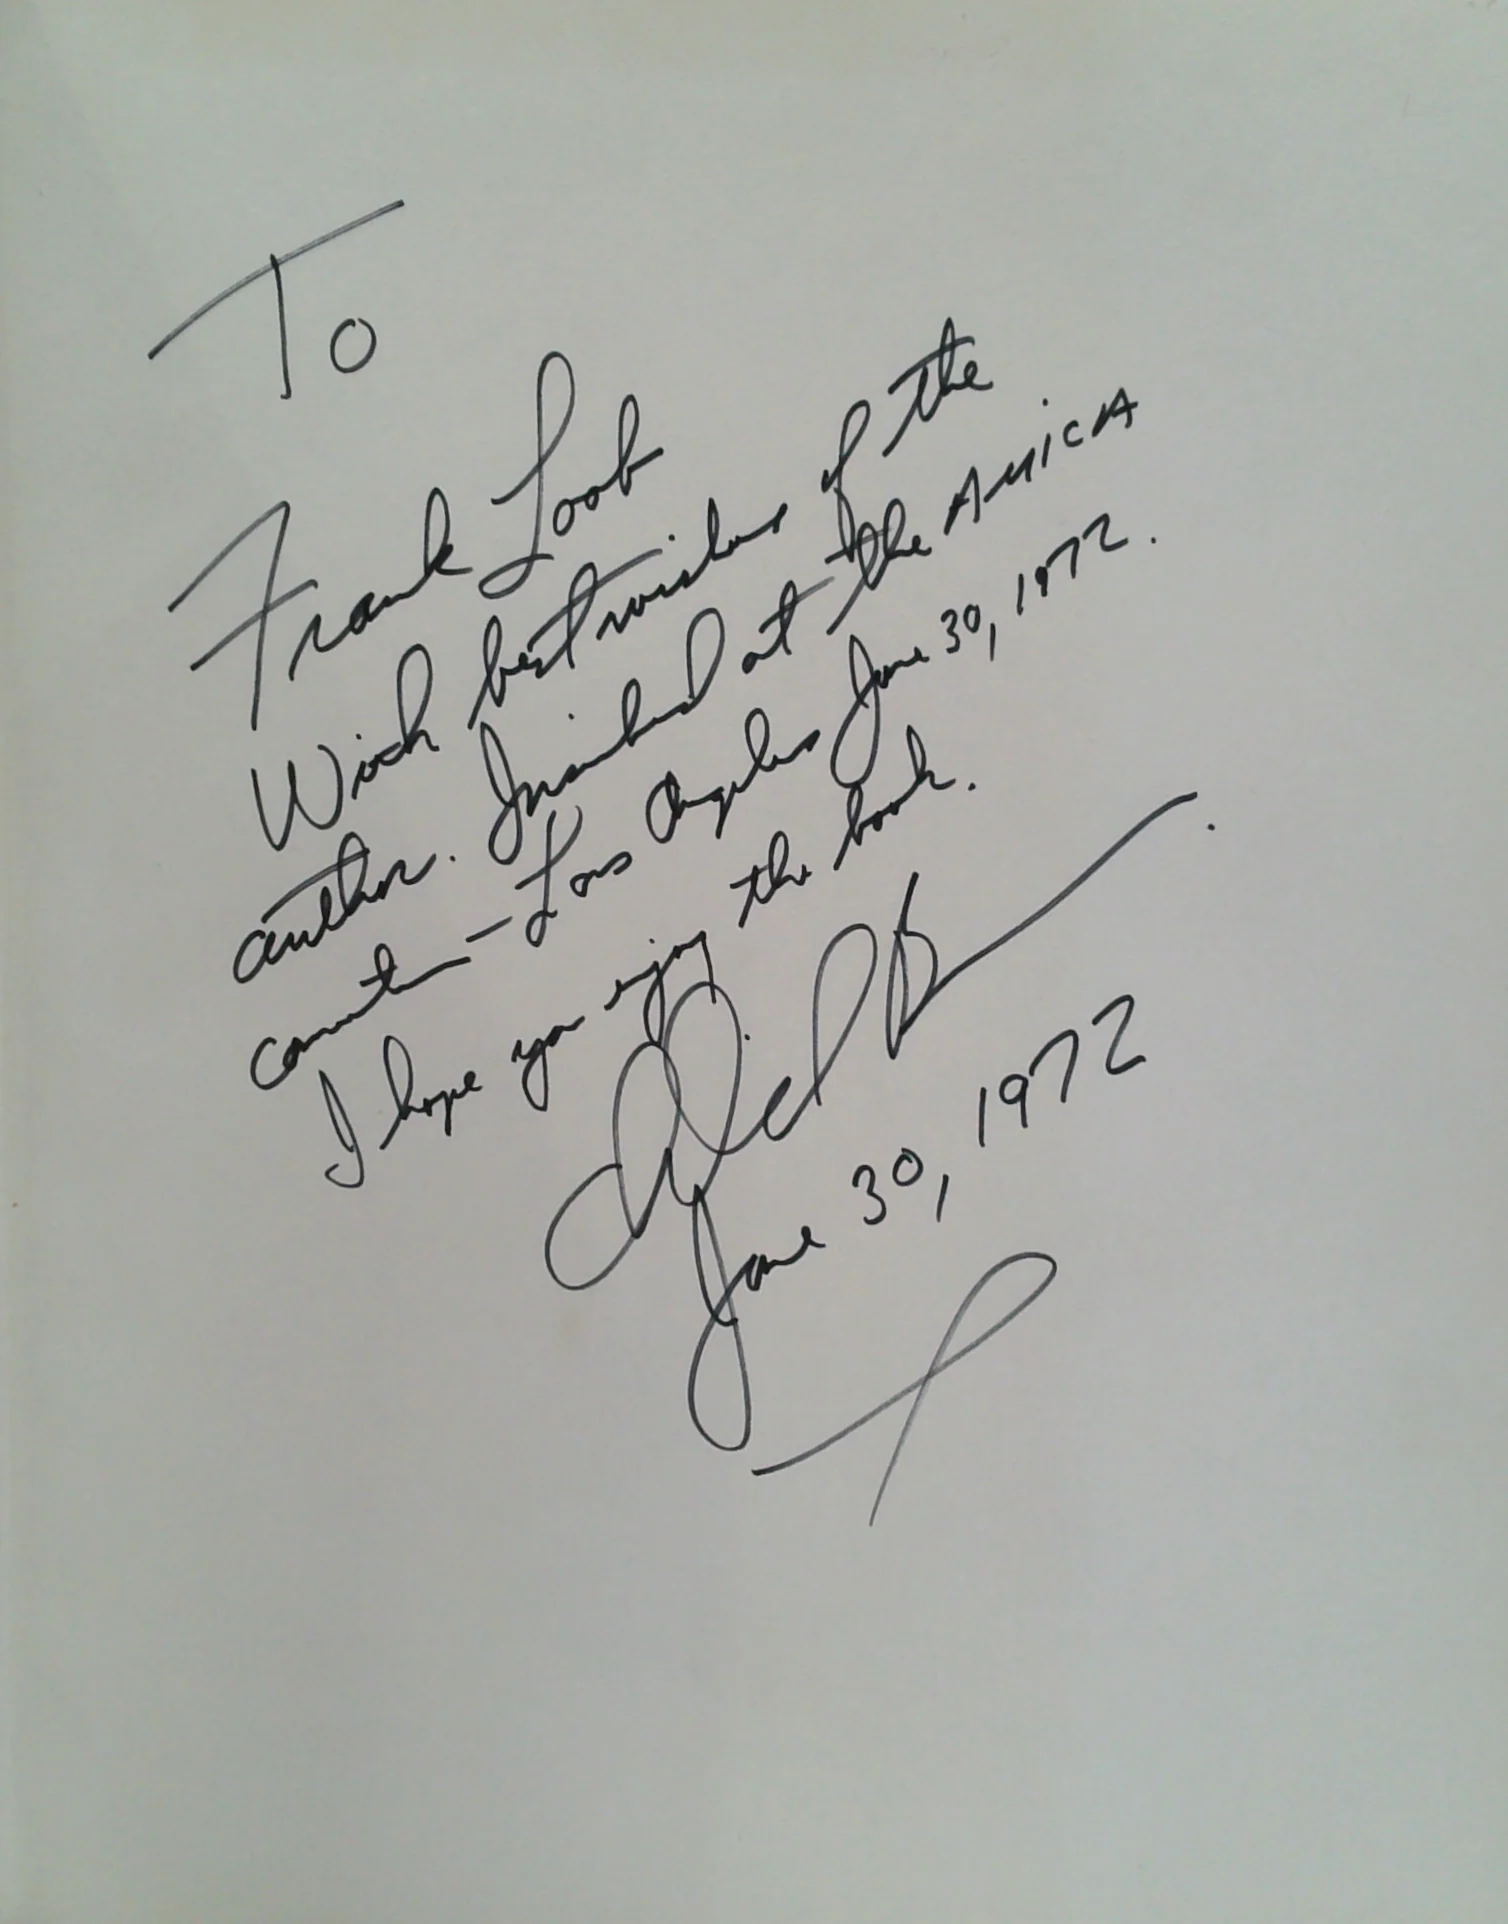 To
Frank Loob
With best wishes of the
author. Inscribed at the AMICA
convention - Los Angeles June 30, 1972.
I hope you enjoy the book.
June 30, 1972